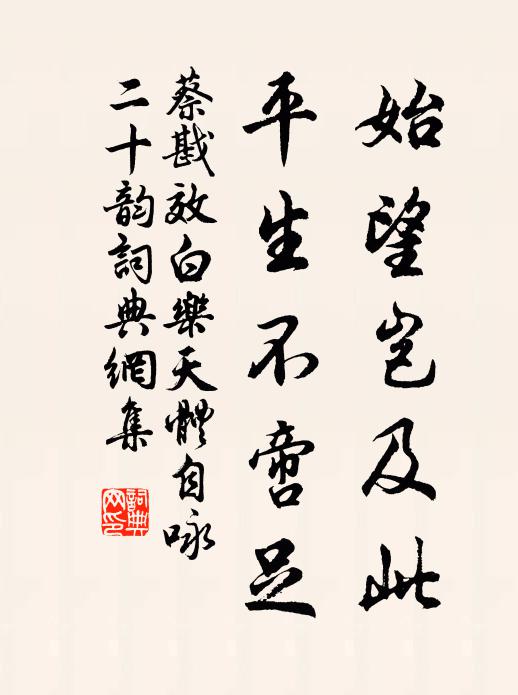 始望岂及此
平生不啻足
蔡戡效白樂天體自咏
二十韵詞典網集
詞典网印